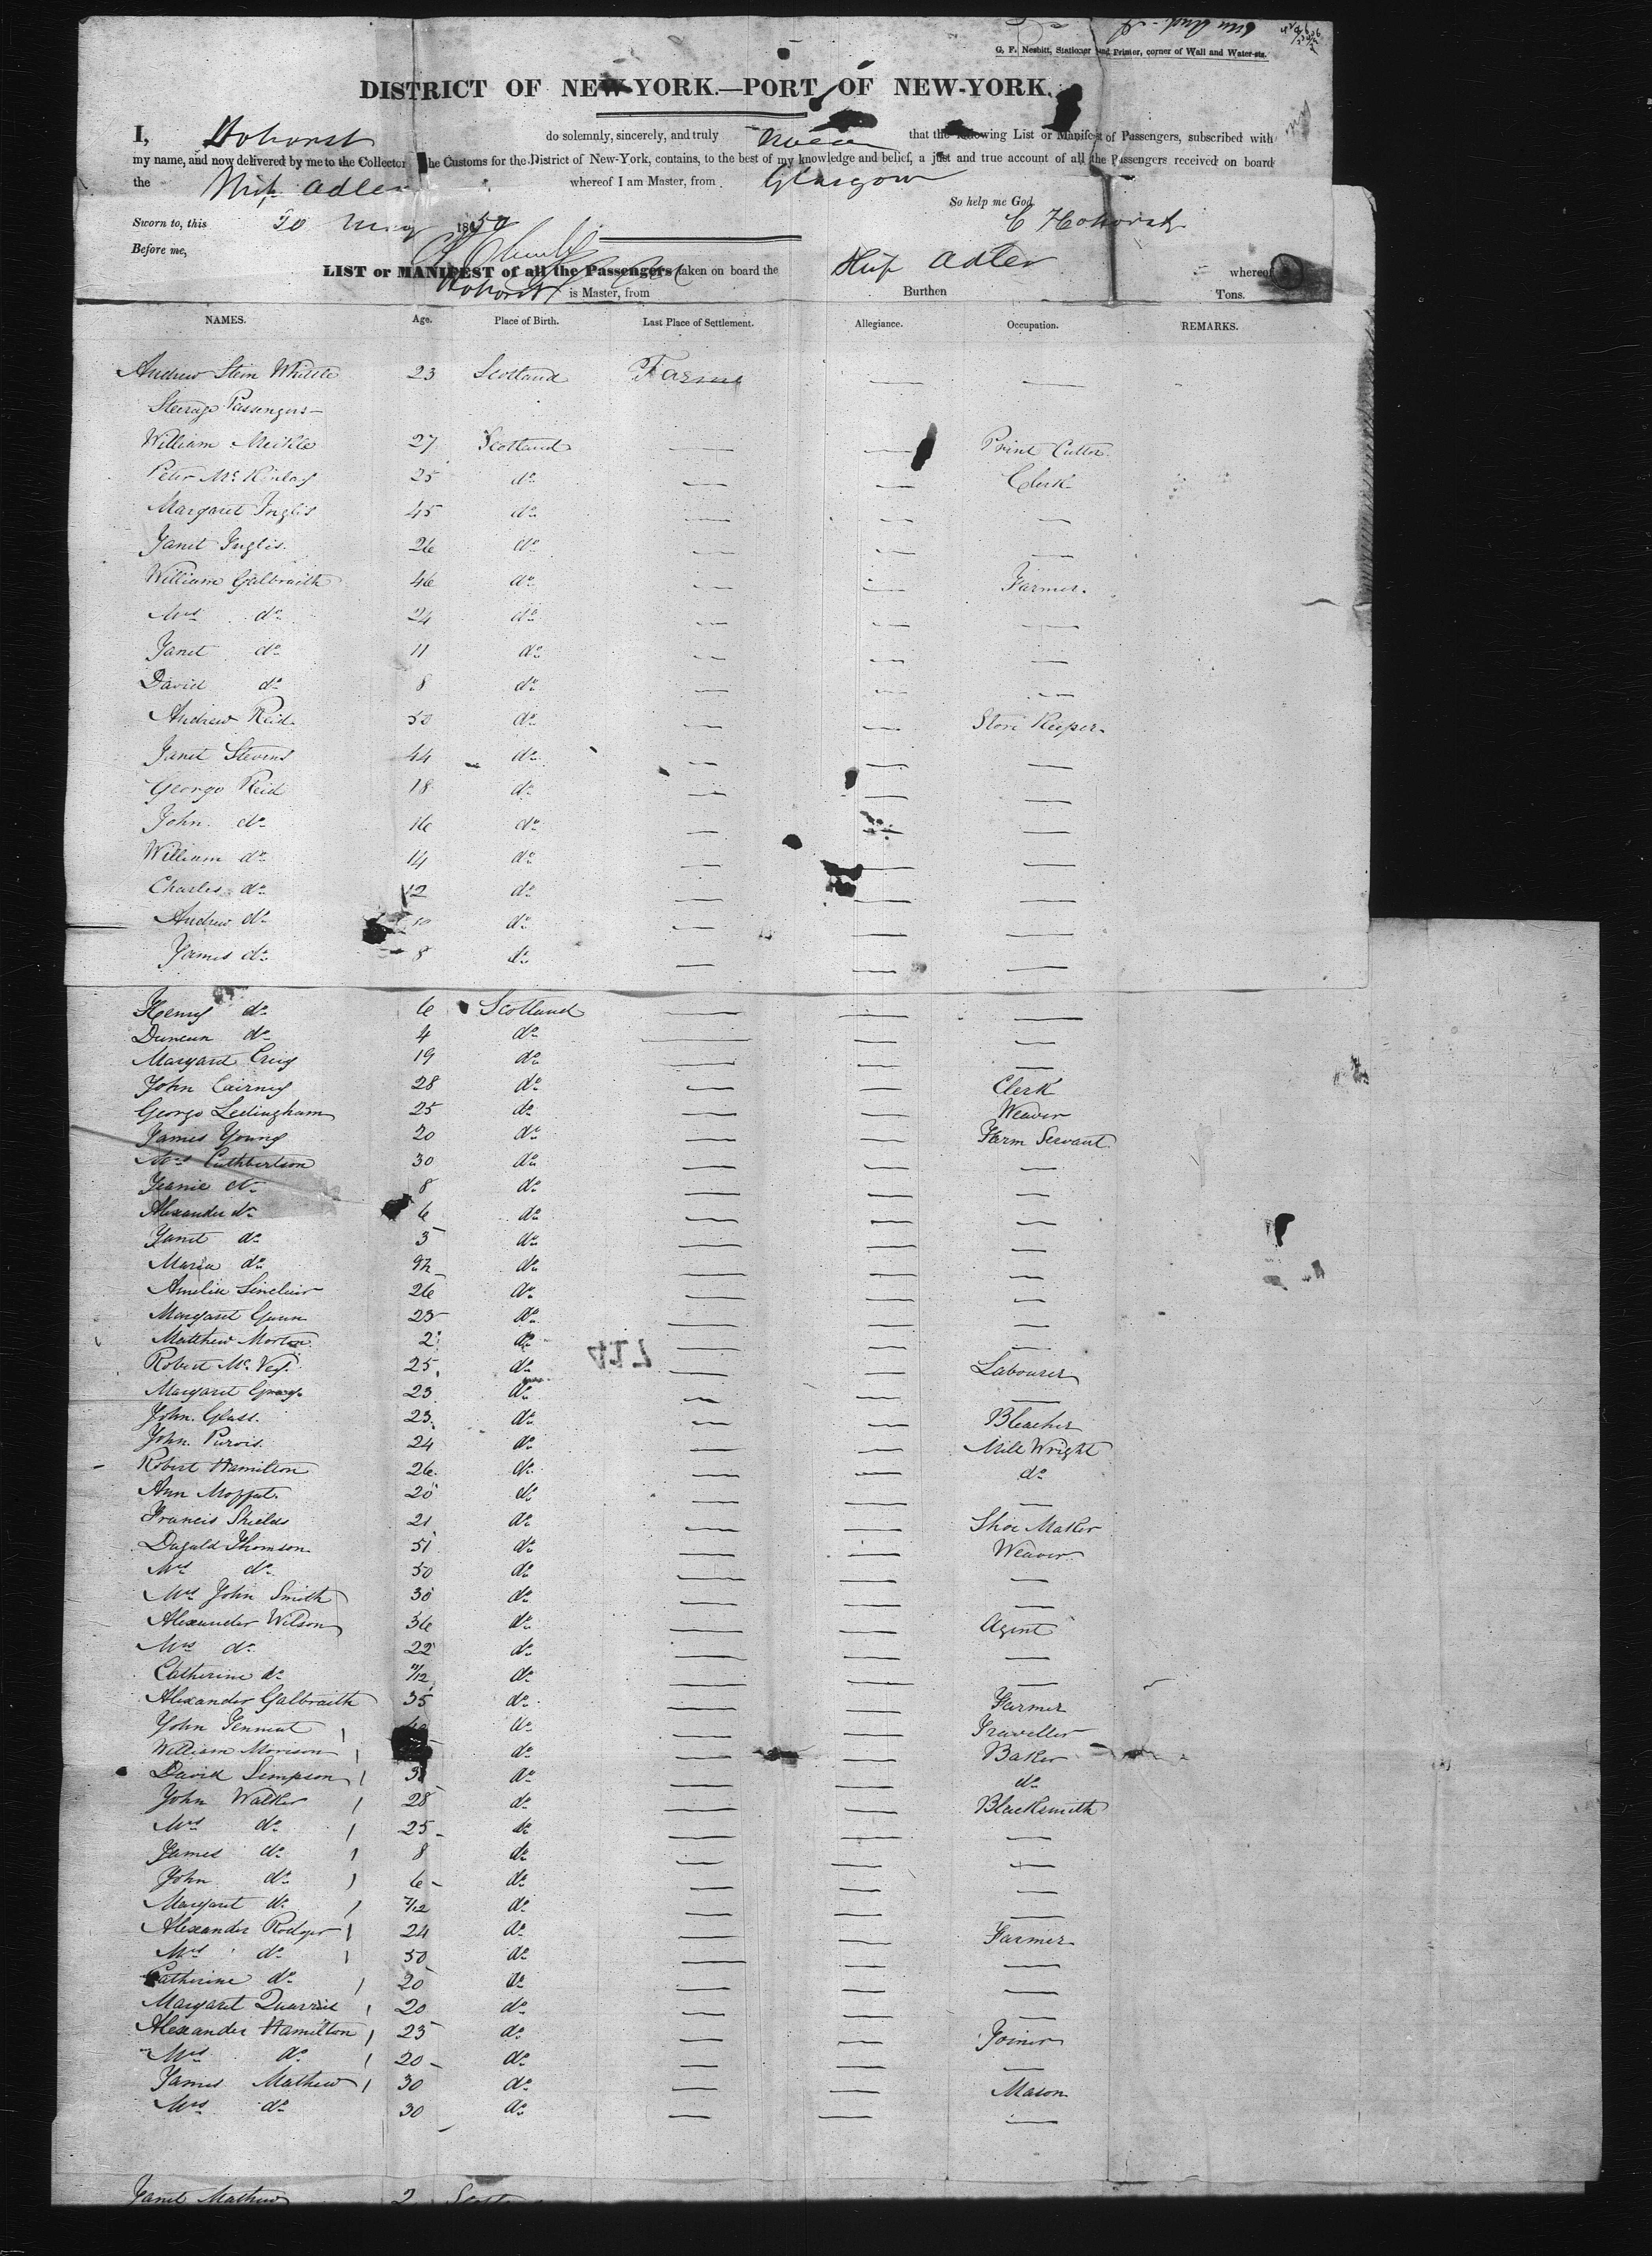 G. F. Nesbitt, Stationer and Printer, corner of Wall and Water-sts.
DISTRICT OF NEW-YORK.—PORT OF NEW-YORK.
I, Hohorst do solemnly, sincerely, and truly that the following List or Manifest of Passengers, subscribed with
my name, and now delivered by me to the Collector the Customs for the District of New-York, contains, to the best of my knowledge and belief, a just and true account of all the Passengers received on board
the Ship Adler whereof I am Master, from Glasgow
So help me God.
Sworn to, this 20 May 1850 C Hohorst
Before me,
LIST or MANIFEST of all the Passengers taken on board the Ship Adler whereof
Hohorst is Master, from Burthen Tons.
NAMES. Age. Place of Birth. Last Place of Settlement. Allegiance. Occupation. REMARKS.
Andrew Stein Whittle 23 Scotland — —
Steerage Passengers—
William Meikle 27 Scotland — — Print Cutter
Peter McKinlay 25 do — — Clerk
Margaret Inglis 45 do — — —
Janet Inglis 26 do — — —
William Galbraith 46 do — — Farmer.
Mrs do 24 do — — —
Janet do 11 do — — —
David do 8 do — — —
Andrew Reid 50 do — — Store Keeper.
Janet Stevens 44 do — — —
George Reid 18 do — — —
John do 16 do — — —
William do 14 do — — —
Charles do 12 do — — —
Andrew do 10 do — — —
James do 8 do — — —
Henry do 6 Scotland — — —
Duncan do 4 do — — —
Margaret Craig 19 do — — —
John Cairney 28 do — — Clerk
George Ledingham 25 do — — Weaver
James Young 20 do — — Farm Servant
Mrs Cuthbertson 30 do — — —
Jeanie do 8 do — — —
Alexander do 6 do — — —
Janet do 3 do — — —
Maria do do — — —
Amelia Sinclair 26 do — — —
Margaret Gunn 25 do — — —
Matthew Morton 2 do — — —
Robert McVey 25 do — — Labourer
Margaret 23 do — — —
John Glass. 23 do — — Bleacher
John Purvis 24 do — — Mill Wright
Robert Hamilton 26 do — — do
Ann Moffat. 20 do — — —
Francis Shields 21 do — — Shoe Maker
Dugald Thomson 51 do — — Weaver
Mrs do 50 do — — —
Mrs John Smith 30 do — — —
Alexander Wilson 36 do — — Agent
Mrs do 22 do — — —
Catherine do 11/12 do — — —
Alexander Galbraith 35 do — — Farmer
John Tennent do — — Traveller
William Morison do — — Baker
David Simpson do — — do
John Walker 28 do — — Blacksmith
Mrs do 25 do — — —
James do 8 do — — —
John do 6 do — — —
Margaret do 7/12 do — — —
Alexander Rodger 24 do — — Farmer
Mrs do 50 do — — —
Catherine do 20 do — — —
Margaret 20 do — — —
Alexander Hamilton 25 do — — Joiner
Mrs do 20 do — — —
James Mathew 30 do — — Mason
Mrs do 30 do — — —
Janet Mathew 2
417